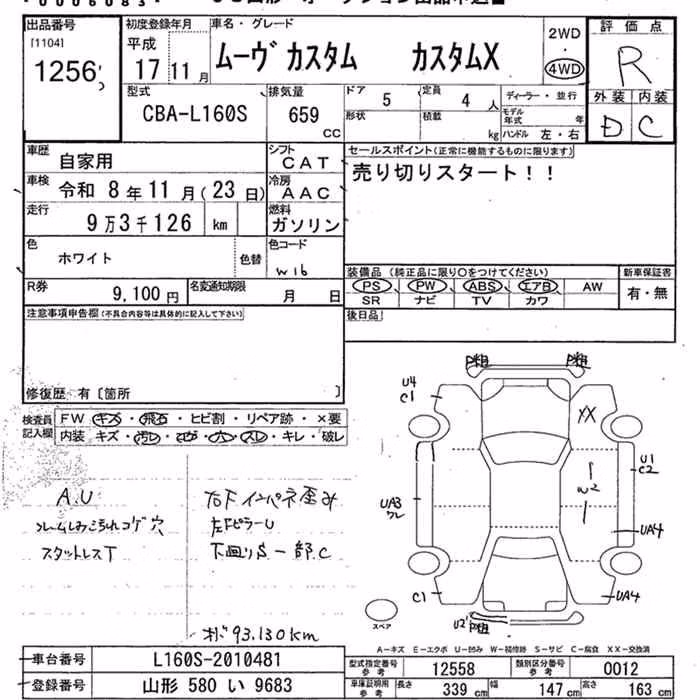 出品番号
[1104]
1256
初度登録年月
平成
17 11月
車名・グレード
ムーヴ カスタム カスタムX
2WD
・
4WD
評価点
R
外装 内装
D C
型式
CBA-L160S
排気量
659
cc
ドア 5
定員 4 人
形状
積載 kg
ディーラー・並行
モデル年式 年
ハンドル 左・右
車歴 自家用
シフト CAT
車検 令和 8年 11月(23日)
冷房 AAC
走行 9万3千126 km
燃料 ガソリン
色 ホワイト
色替
色コード
W16
R券 9,100円
名変通知期限 月 日
セールスポイント(正常に機能するものに限ります)
売り切りスタート!!
装備品(純正品に限り○をつけてください)
PS PW ABS エアB AW
SR ナビ TV カワ
新車保証書
有・無
後日品
注意事項申告欄(不具合内容等は具体的に記入して下さい)
修復歴 有〔箇所 〕
検査員記入欄
FW キズ・飛石・ヒビ割・リペア跡・×要
内装 キズ・汚レ・コゲ・穴・スレ・キレ・破レ
A.U
コゲ穴
スタットレスT
右F インパネ歪み
左Fピラーu
下廻りS 一部C
オド93.130km
U4
C1
XX
U1
C2
W2
UA3
ワレ
UA4
C1
UA4
U2
スペア
A-キズ E-エクボ U-凹み W-補修跡 S-サビ C-腐食 XX-交換済
車台番号 L160S-2010481
登録番号 山形 580 い 9683
型式指定番号 参考 12558
類別区分番号 参考 0012
車庫証明用 参考 長さ 339 cm 幅 147 cm 高さ 163 cm